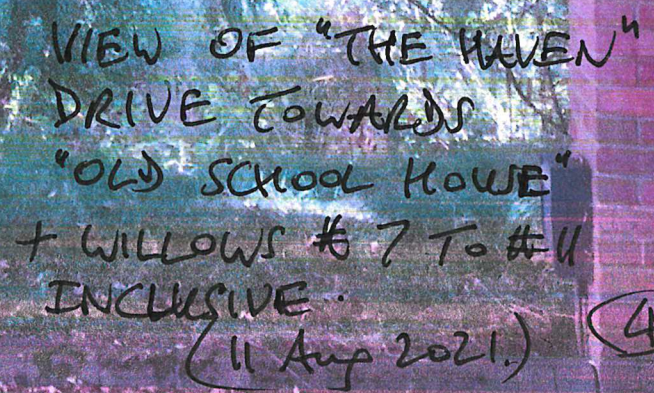 VIEW OF "THE HAVEN"
DRIVE TOWARDS
"OLD SCHOOL HOUSE"
+ WILLOWS # 7 TO #11
INCLUSIVE.
(11 Aug 2021.)
(4